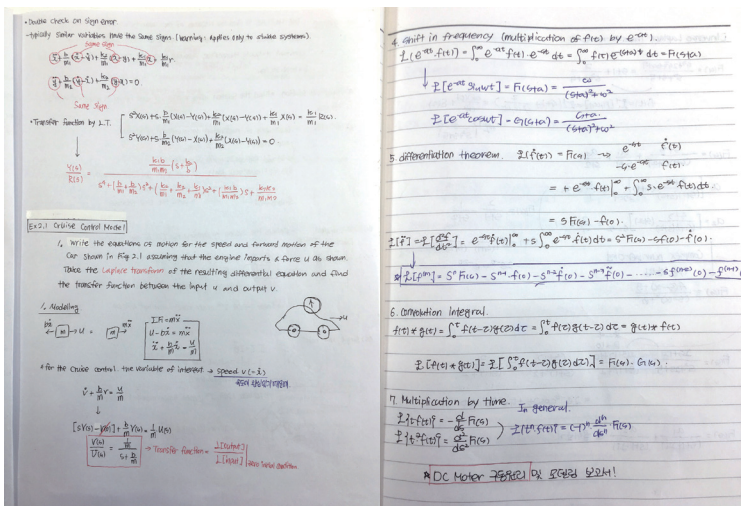 • Double check on sign error.
- typically similar variables have the same signs. (Warning: Applies only to stable systems).
same sign
Same Sign
• Transfer function by L.T.
s²X(s)+s b/m₁ (X(s)-Y(s))+
s²Y(s)+s b/m₂ (Y(s)-X(s))+
Y(s)/R(s) =
Ex2.1 Cruise Control Model
1. Write the equations of motion for the speed and forward motion of the
car shown in Fig 2.1 assuming that the engine imparts a force u as shown.
Take the Laplace transform of the resulting differential equation and find
the transfer function between the input u and output v.
1. Modeling
bẋ ← m → u = m → mẍ
ΣF = mẍ
u - bẋ = mẍ
ẍ + b/m ẋ = u/m
→u
* for the cruise control, the variable of interest → speed v (=ẋ)
v̇ + b/m v = u/m
↓
V(s)/U(s) = (1/m)/(s+b/m) → Transfer function = L[output]/L[input] | zero initial condition
4. shift in frequency (multiplication of f(t) by e^-at)
L(e^-at f(t)) = ∫₀^∞ e^-at f(t) · e^-st dt = ∫₀^∞ f(t) e^-(s+a)t dt = F(s+a)
↓ L[e^-at sinωt] = F(s+a) = ω/((s+a)²+ω²)
L[e^-at cosωt] = G(s+a) = (s+a)/((s+a)²+ω²)
5. differentiation theorem. L(ḟ(t)) = F(s) → e^-st ḟ(t)
-s·e^-st f(t)
= + e^-st f(t)|₀^∞ + ∫₀^∞ s·e^-st f(t) dt.
= sF(s) - f(0).
L[f̈] = L[d²f/dt²] = e^-st ḟ(t)|₀^∞ + s∫₀^∞ e^-st ḟ(t) dt = s²F(s) - sf(0) - ḟ(0).
6. Convolution Integral.
f(t) * g(t) = ∫₀^t f(t-τ)g(τ)dτ = ∫₀^t f(τ)g(t-τ)dτ = g(t) * f(t)
L[f(t) * g(t)] = L[∫₀^t f(t-τ)g(τ)dτ] = F(s) · G(s).
7. Multiplication by time. In general.
L{tf(t)} = -d/ds F(s)
L{t²f(t)} = d²/ds² F(s) > L{tⁿf(t)} = (-1)ⁿ dⁿ/dsⁿ F(s)
* DC Moter 구동원리 및 모델링 보고서!